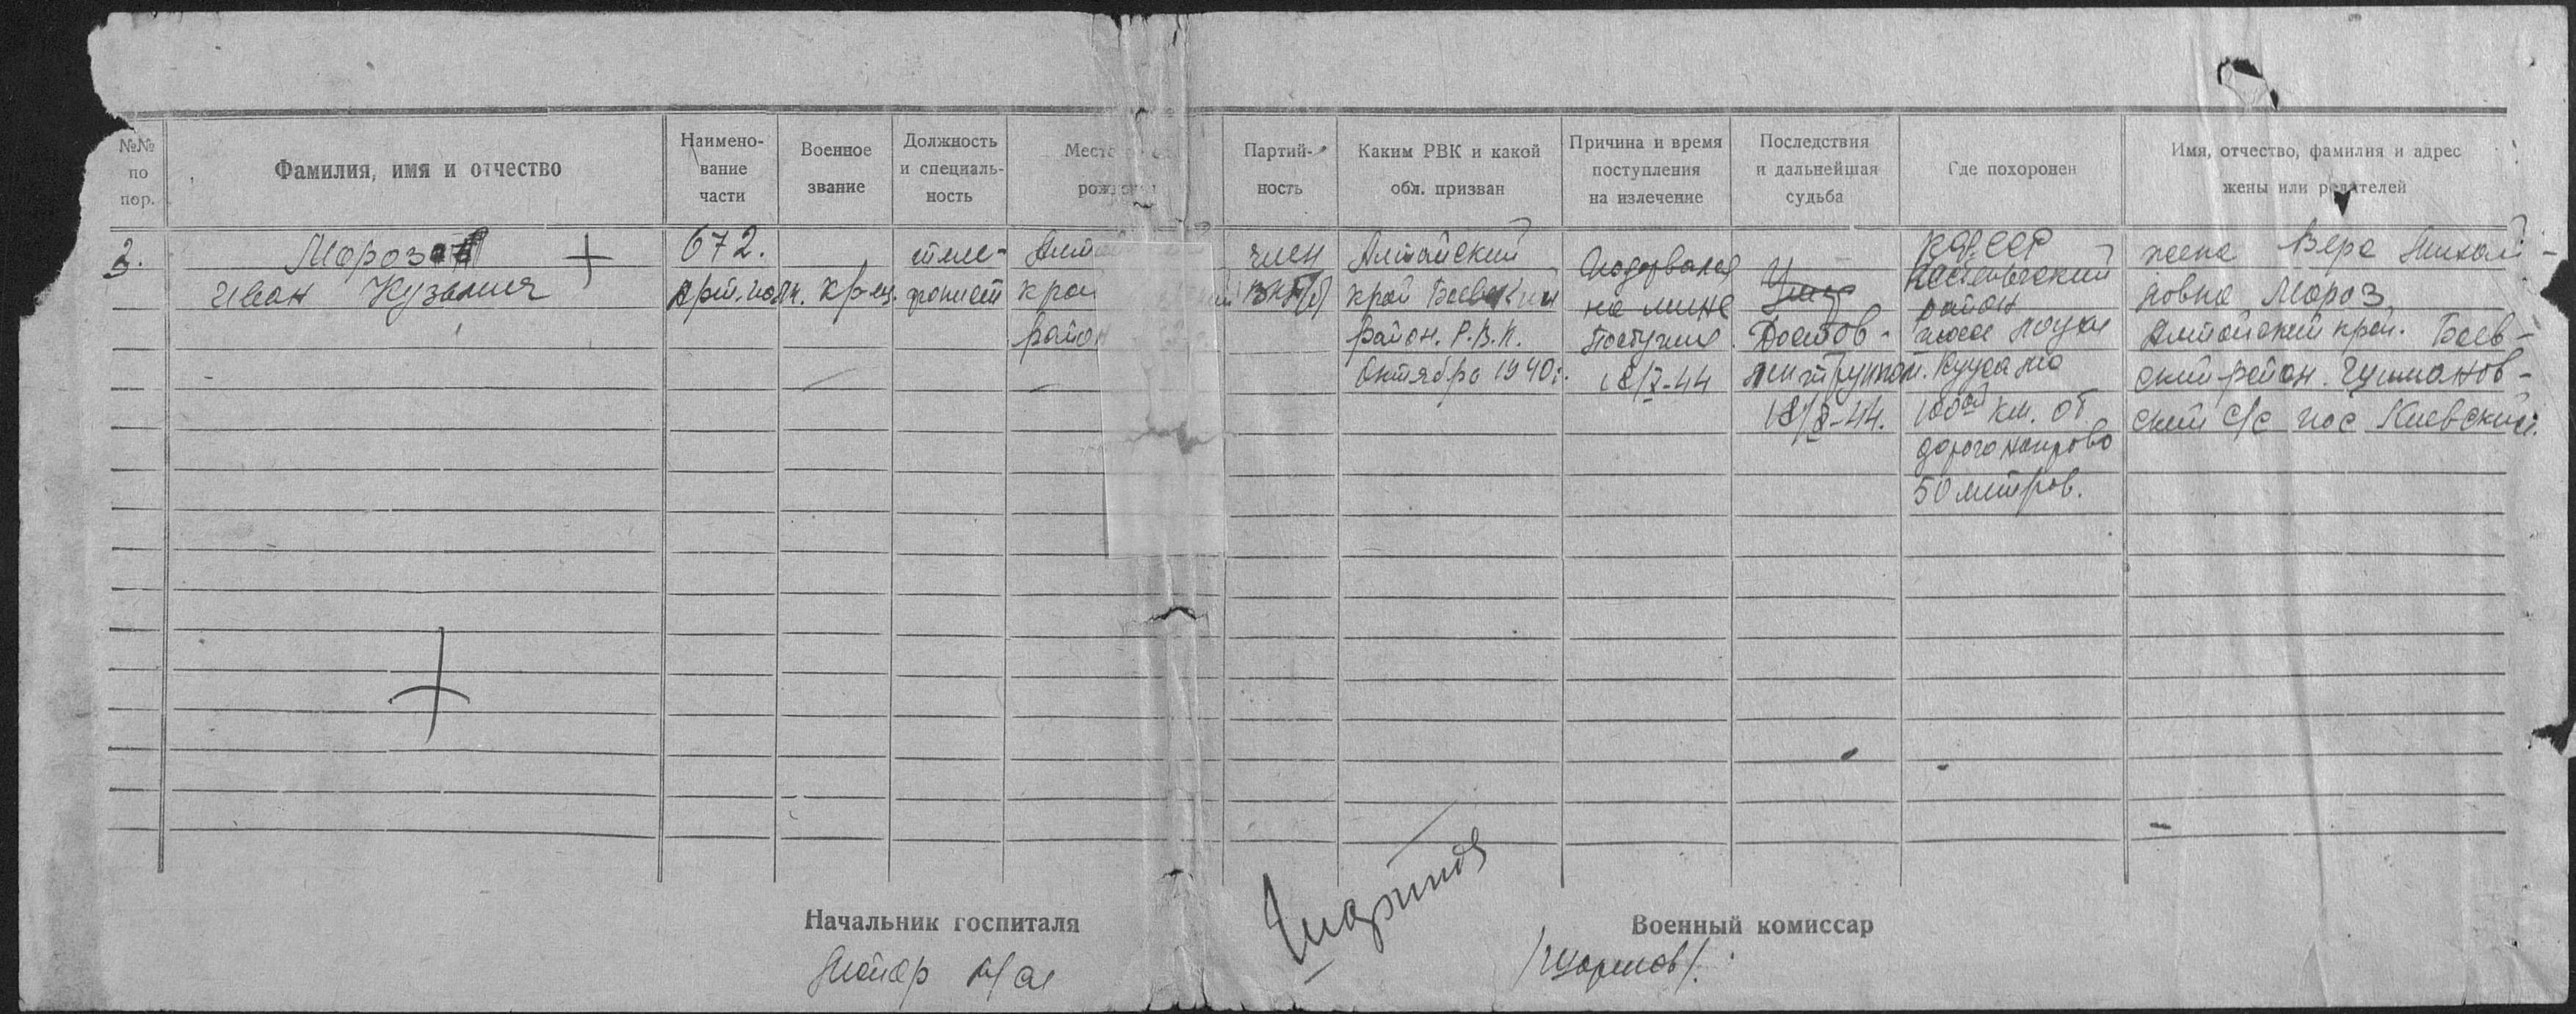 №№ по пор.
Фамилия, имя и отчество
Наимено-
вание
части
Военное
звание
Должность
и специаль-
ность
Место
рождения
Партий-
ность
Каким РВК и какой
обл. призван
Причина и время
поступления
на излечение
Последствия
и дальнейшая
судьба
Где похоронен
Имя, отчество, фамилия и адрес
жены или родителей
3.
Мороз
Иван Кузьмич
672.
Арт. полк.
кр-ец.
теле-
фонист
Алта
край
район
член
ВКП/б/
Алтайский
край Баевский
район. Р.В.К.
Октябрь 1940г.
Подорвался
на мине
Поступил
18/X-44
Умер
Достав-
лен трупом.
18/X-44.
КФССР
район
шоссе Лоухи
Куусамо
100ой км. от
дороги направо
50 метров.
жена Вера Михай-
ловна Мороз
Алтайский край. Баев-
ский район.
ский с/с пос Киевский.
Начальник госпиталя
Майор м/сл
Военный комиссар